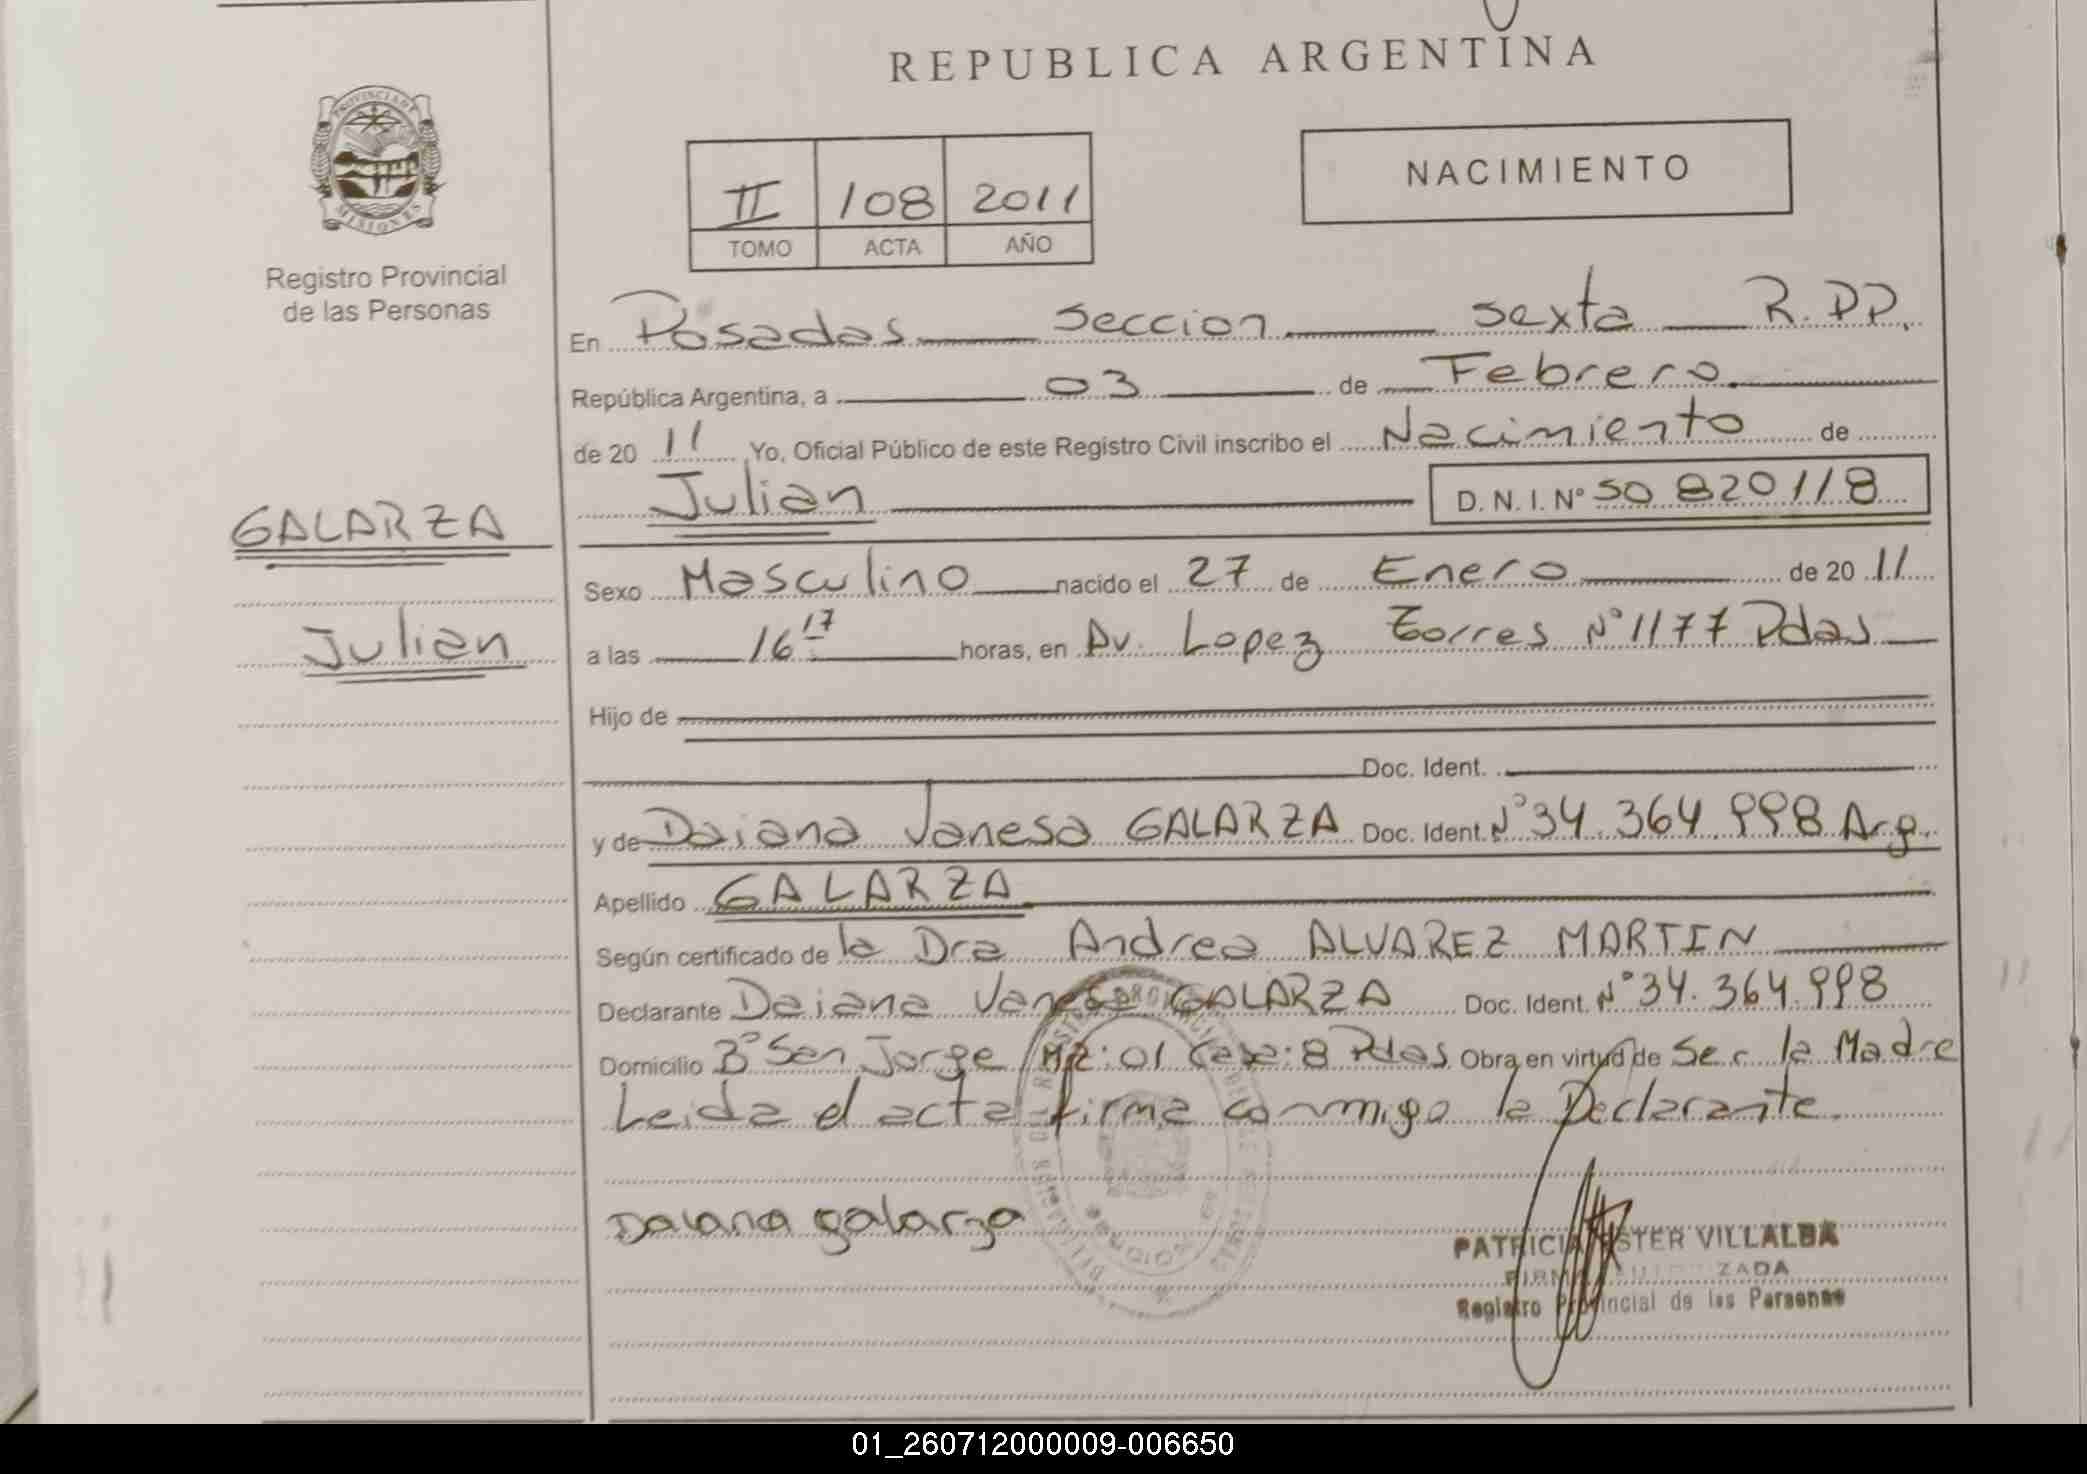 REPUBLICA ARGENTINA
PROVINCIA DE
MISIONES
Registro Provincial
de las Personas
II 108 2011
TOMO ACTA AÑO
NACIMIENTO
En Posadas seccion sexta R.P.P.
República Argentina, a 03 de Febrero
de 20 11 Yo, Oficial Público de este Registro Civil inscribo el Nacimiento de
Julian D. N. I. Nº 50 820118
GALARZA
Julian
Sexo Masculino nacido el 27 de Enero de 20 11
a las 16 17 horas, en Av. Lopez Torres Nº 1177 Pdas
Hijo de
Doc. Ident.
y de Daiana Vanesa GALARZA Doc. Ident. Nº 34.364.998 Arg.
Apellido GALARZA
Según certificado de la Dra Andrea ALVAREZ MARTIN
Declarante Daiana Vanesa GALARZA Doc. Ident. Nº 34.364.998
Domicilio Bº San Jorge Mz: 01 Casa: 8 Pdas Obra en virtud de Ser la Madre
Leida el acta firma conmigo la Declarante.
Daiana galarza
PATRICIA ESTER VILLALBA
FIRMA AUTORIZADA
Registro Provincial de las Personas
01_260712000009-006650